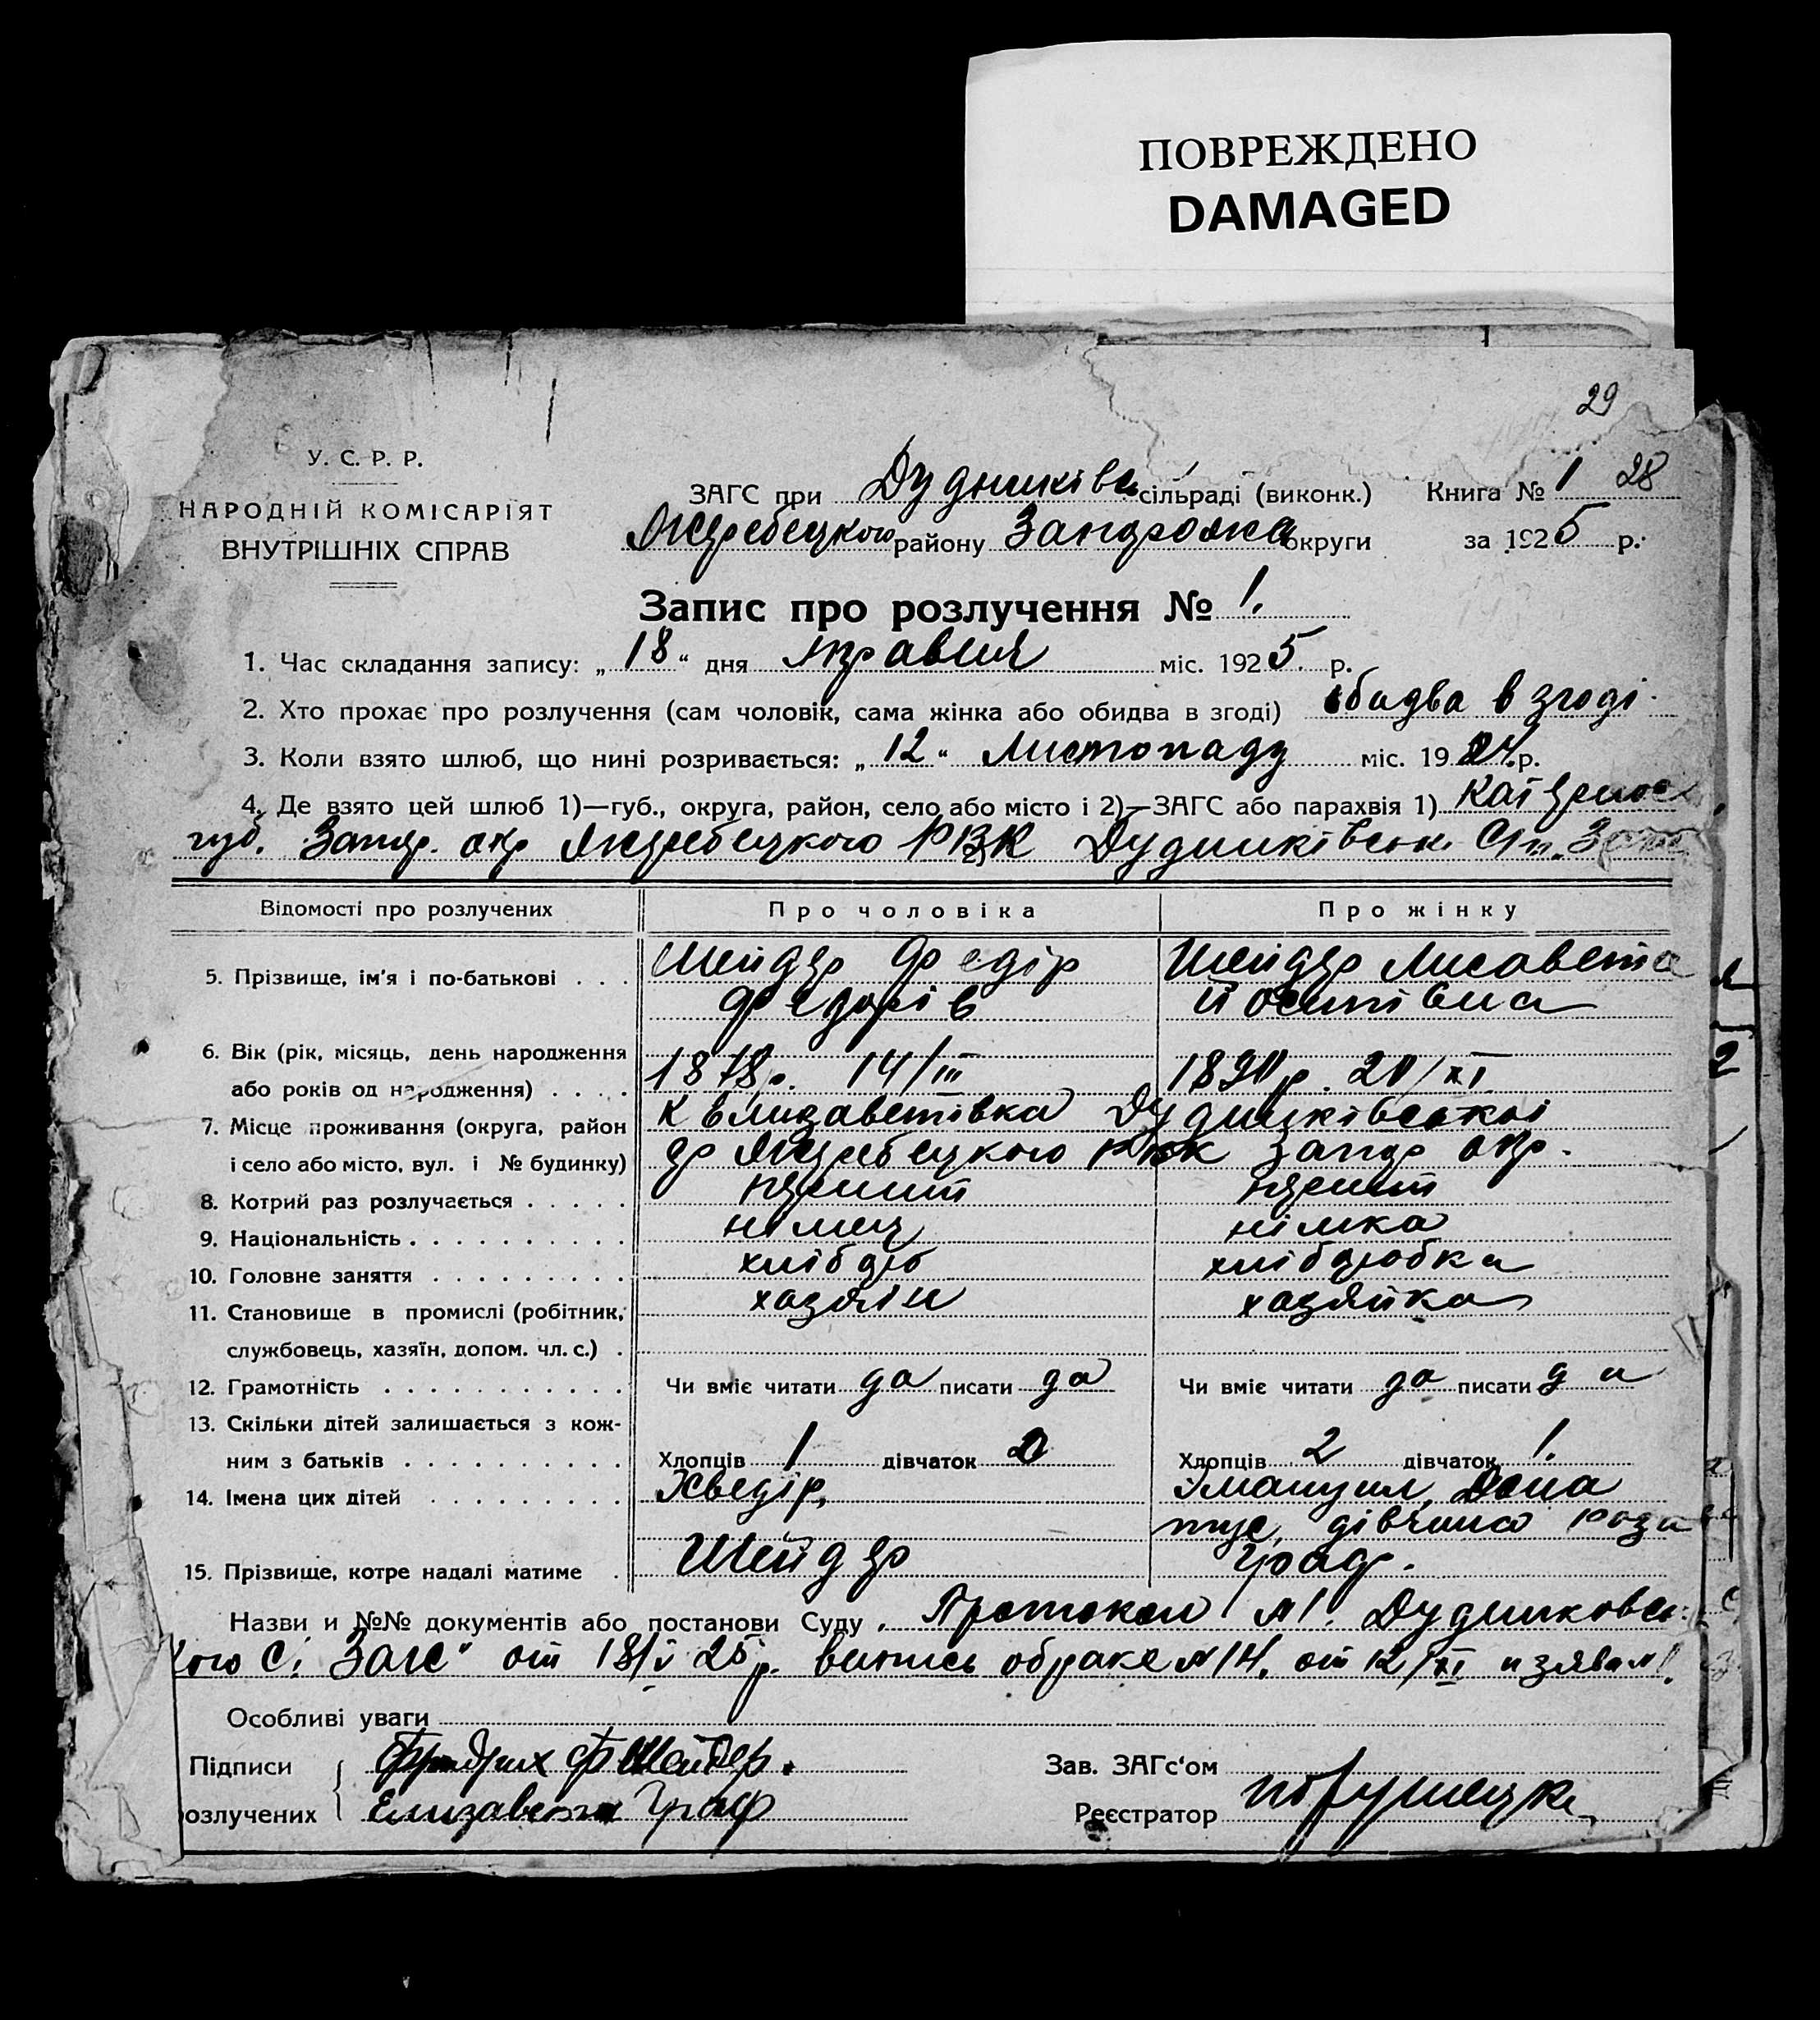 ПОВРЕЖДЕНО
DAMAGED
29
У. С. Р. Р.
НАРОДНІЙ КОМІСАРІЯТ
ВНУТРІШНІХ СПРАВ
ЗАГС при Дудниківс сільраді (виконк.) Книга № 1 28
Жеребецкого району Запорожск округи за 1925 р.
Запис про розлучення № 1.
1. Час складання запису: „ 18 “ дня травня міс. 1925. р.
2. Хто прохає про розлучення (сам чоловік, сама жінка або обидва в згоді) обидва в згоді
3. Коли взято шлюб, що нині розривається: „ 12 “ Листопаду міс. 1924 р.
4. Де взято цей шлюб 1)—губ., округа, район, село або місто і 2)—ЗАГС або парахвія 1) Катеринос
губ. Запор. окр Жеребецкого РВК Дудниківськ.
Відомості про розлучених Про чоловіка Про жінку
5. Прізвище, ім'я і по-батькові . . . Шейдер Федір Шейдер Лисавета
Федорів Йосипівна
6. Вік (рік, місяць, день народження
або років од народження) . . . . 1878 р. 14/III 1890 р. 20/XI
7. Місце проживання (округа, район к Елизаветівка Дудниківської
і село або місто, вул. і № будинку) Жеребецкого РВК Запор окр.
8. Котрий раз розлучається . . . . . перший перший
9. Національність . . . . . . . . . . німец німка
10. Головне заняття . . . . . . . . . хлібороб хліборобка
11. Становище в промислі (робітник, хазяін хазяйка
службовець, хазяїн, допом. чл. с.) .
12. Грамотність . . . . . . . . . . . Чи вміє читати да писати да Чи вміє читати да писати да
13. Скільки дітей залишається з кож-
ним з батьків . . . . . . . . . . Хлопців 1 дівчаток 0 Хлопців 2 дівчаток 1.
14. Імена цих дітей . . . . . . . . . Хведір, Эмануил,
дівчина Роза
15. Прізвище, котре надалі матиме . Шейдер Граф.
Назви и №№ документів або постанови Суду . Протокол №1. Дудниковсь
кого С. Загс" от 18/V 25 р. випись о браке №14. от 12/XI и заява №1.
Особливі уваги
Підписи Фридрих Ф Шейдер. Зав. ЗАГс'ом
розлучених Елизавета Граф Реєстратор